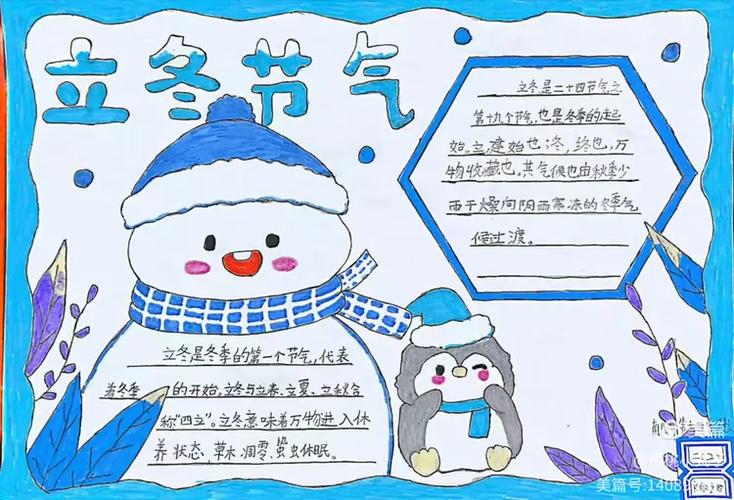 立冬节气
立冬是二十四节气之
第十九个节气,也是冬季的起
始。立,建始也;冬,终也,万
物收藏也。其气候也由秋季少
雨干燥向阴雨寒冻的冬季气
候过渡。
立冬是冬季的第一个节气,代表
着冬季的开始。立冬与立春、立夏、立秋合
称"四立"。立冬意味着万物进入休
养状态,草木凋零、蛰虫休眠。
美篇
美篇号:1408